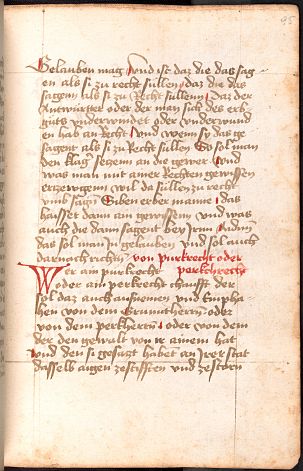 95
Gelauben mag / Vnd ist daz die das sag
en als si zu recht sullen / daz die das
sagen als si zu Recht sullenn / Daz der
Antwurtter oder der man sich des erb
guts vnderwindet oder vnderwund
en hab an Recht / Vnd wenn sy das ge
sagent als si zu Recht sullen So sol man
den klag seczenn an die gewer / Vnd
was man mit amer Rechten gewissen
erzewgenn wil da sullen zu recht
vmb sagn Siben erber manne / das
haisset dann ain gewissenn / vnd was
auch die dann sagent bey Irm
das sol man In gelauben vnd sol auch
darnach richten / von purkrecht oder
perkchrecht
Wer ain purkrecht
oder ain perkrecht chaufft der
sol daz auch aufnemen vnd Empha
hen von dem Gruntherrn oder
von dem perkherrn / oder von dem
der den gewalt von ir ainem hat
Vnd den si gesaczt habent an Irer stat
dasselb aigen zestifften vnd zestorn